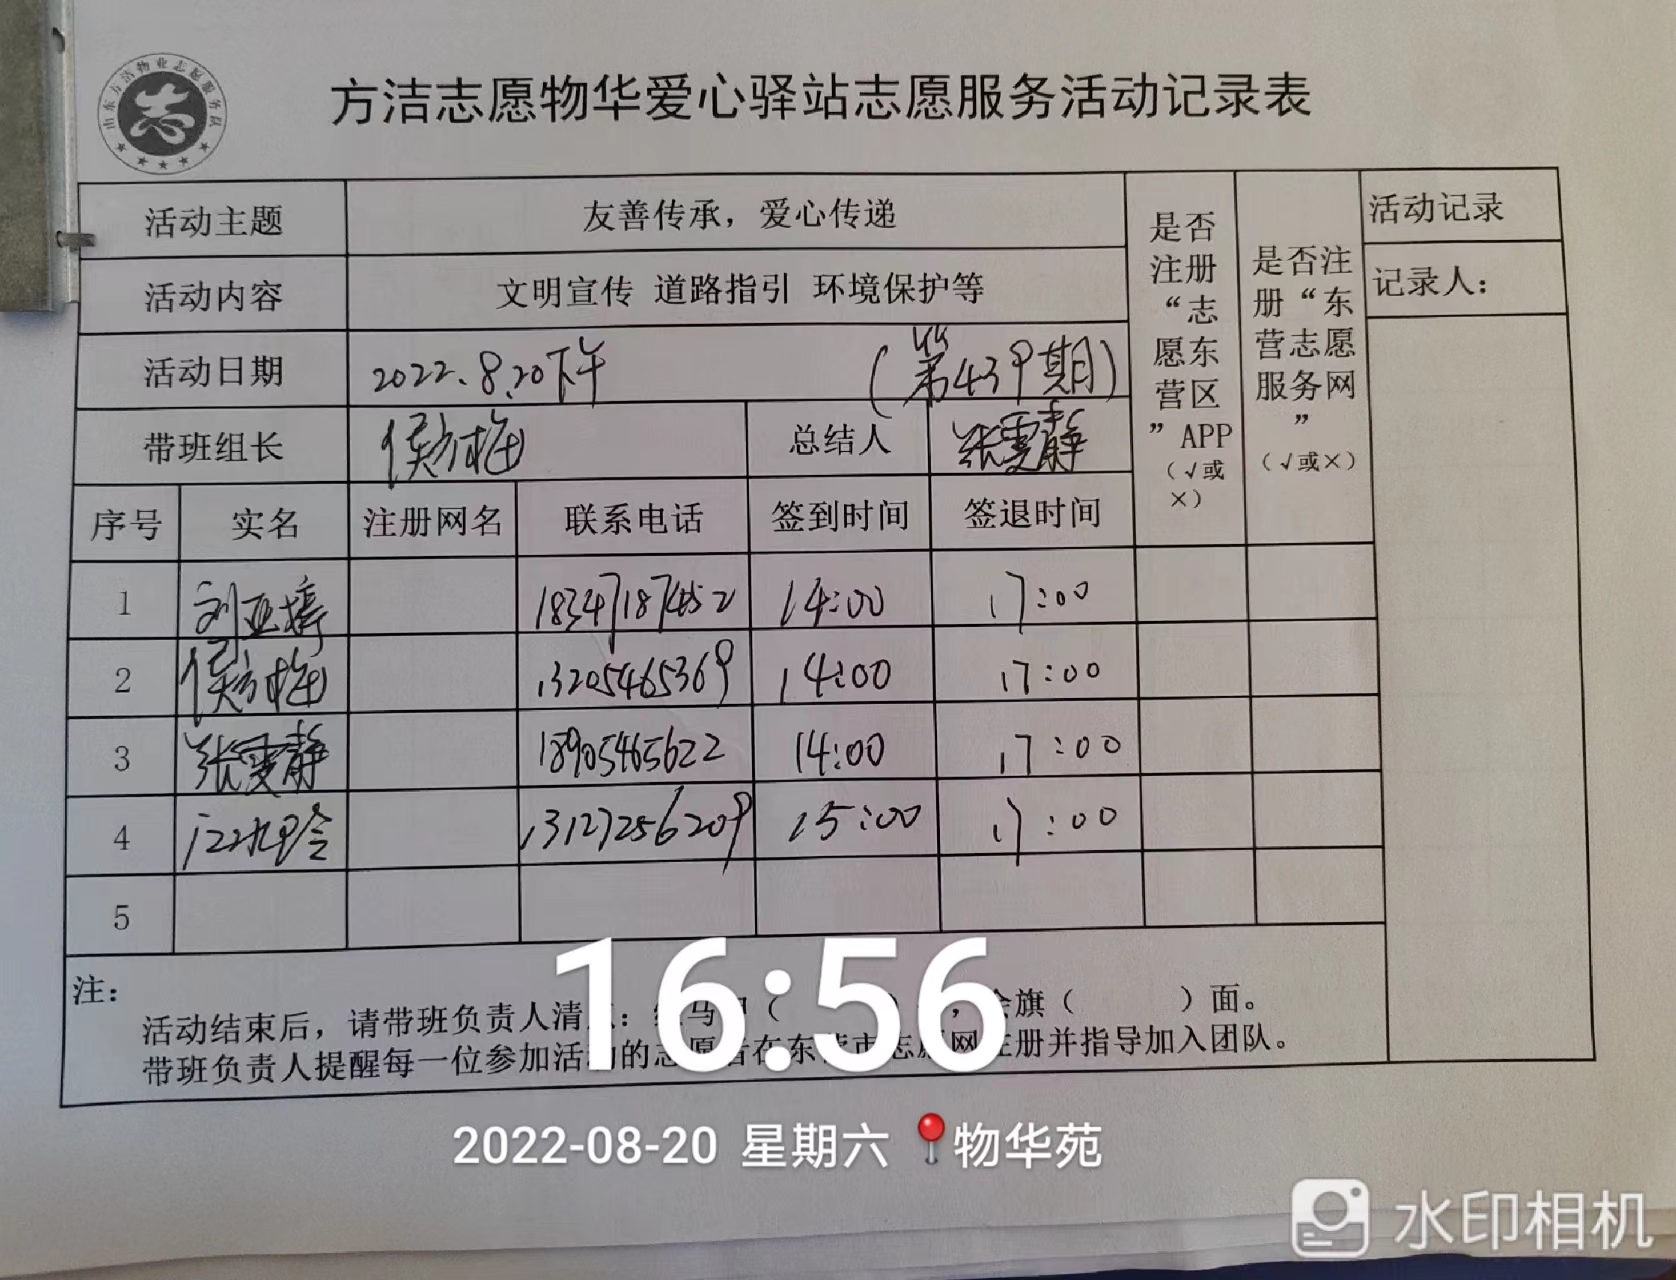 山东方洁物业志愿服务队
志
方洁志愿物华爱心驿站志愿服务活动记录表
活动主题 友善传承，爱心传递 是否注册“志愿东营区”APP（√或×） 是否注册“东营志愿服务网”（√或×） 活动记录
活动内容 文明宣传 道路指引 环境保护等 记录人：
活动日期 2022.8.20下午 （第439期）
带班组长 侯方梅 总结人 张雯静
序号 实名 注册网名 联系电话 签到时间 签退时间
1 刘亚婷 18347187452 14:00 17:00
2 侯方梅 13205465369 14:00 17:00
3 张雯静 18905465622 14:00 17:00
4 13127256209 15:00 17:00
5
注：
活动结束后，请带班负责人清 ： 马 （ ）， 旗（ ）面。
带班负责人提醒每一位参加活动的志愿者在东营市志愿网注册并指导加入团队。
16:56
2022-08-20 星期六 物华苑
水印相机